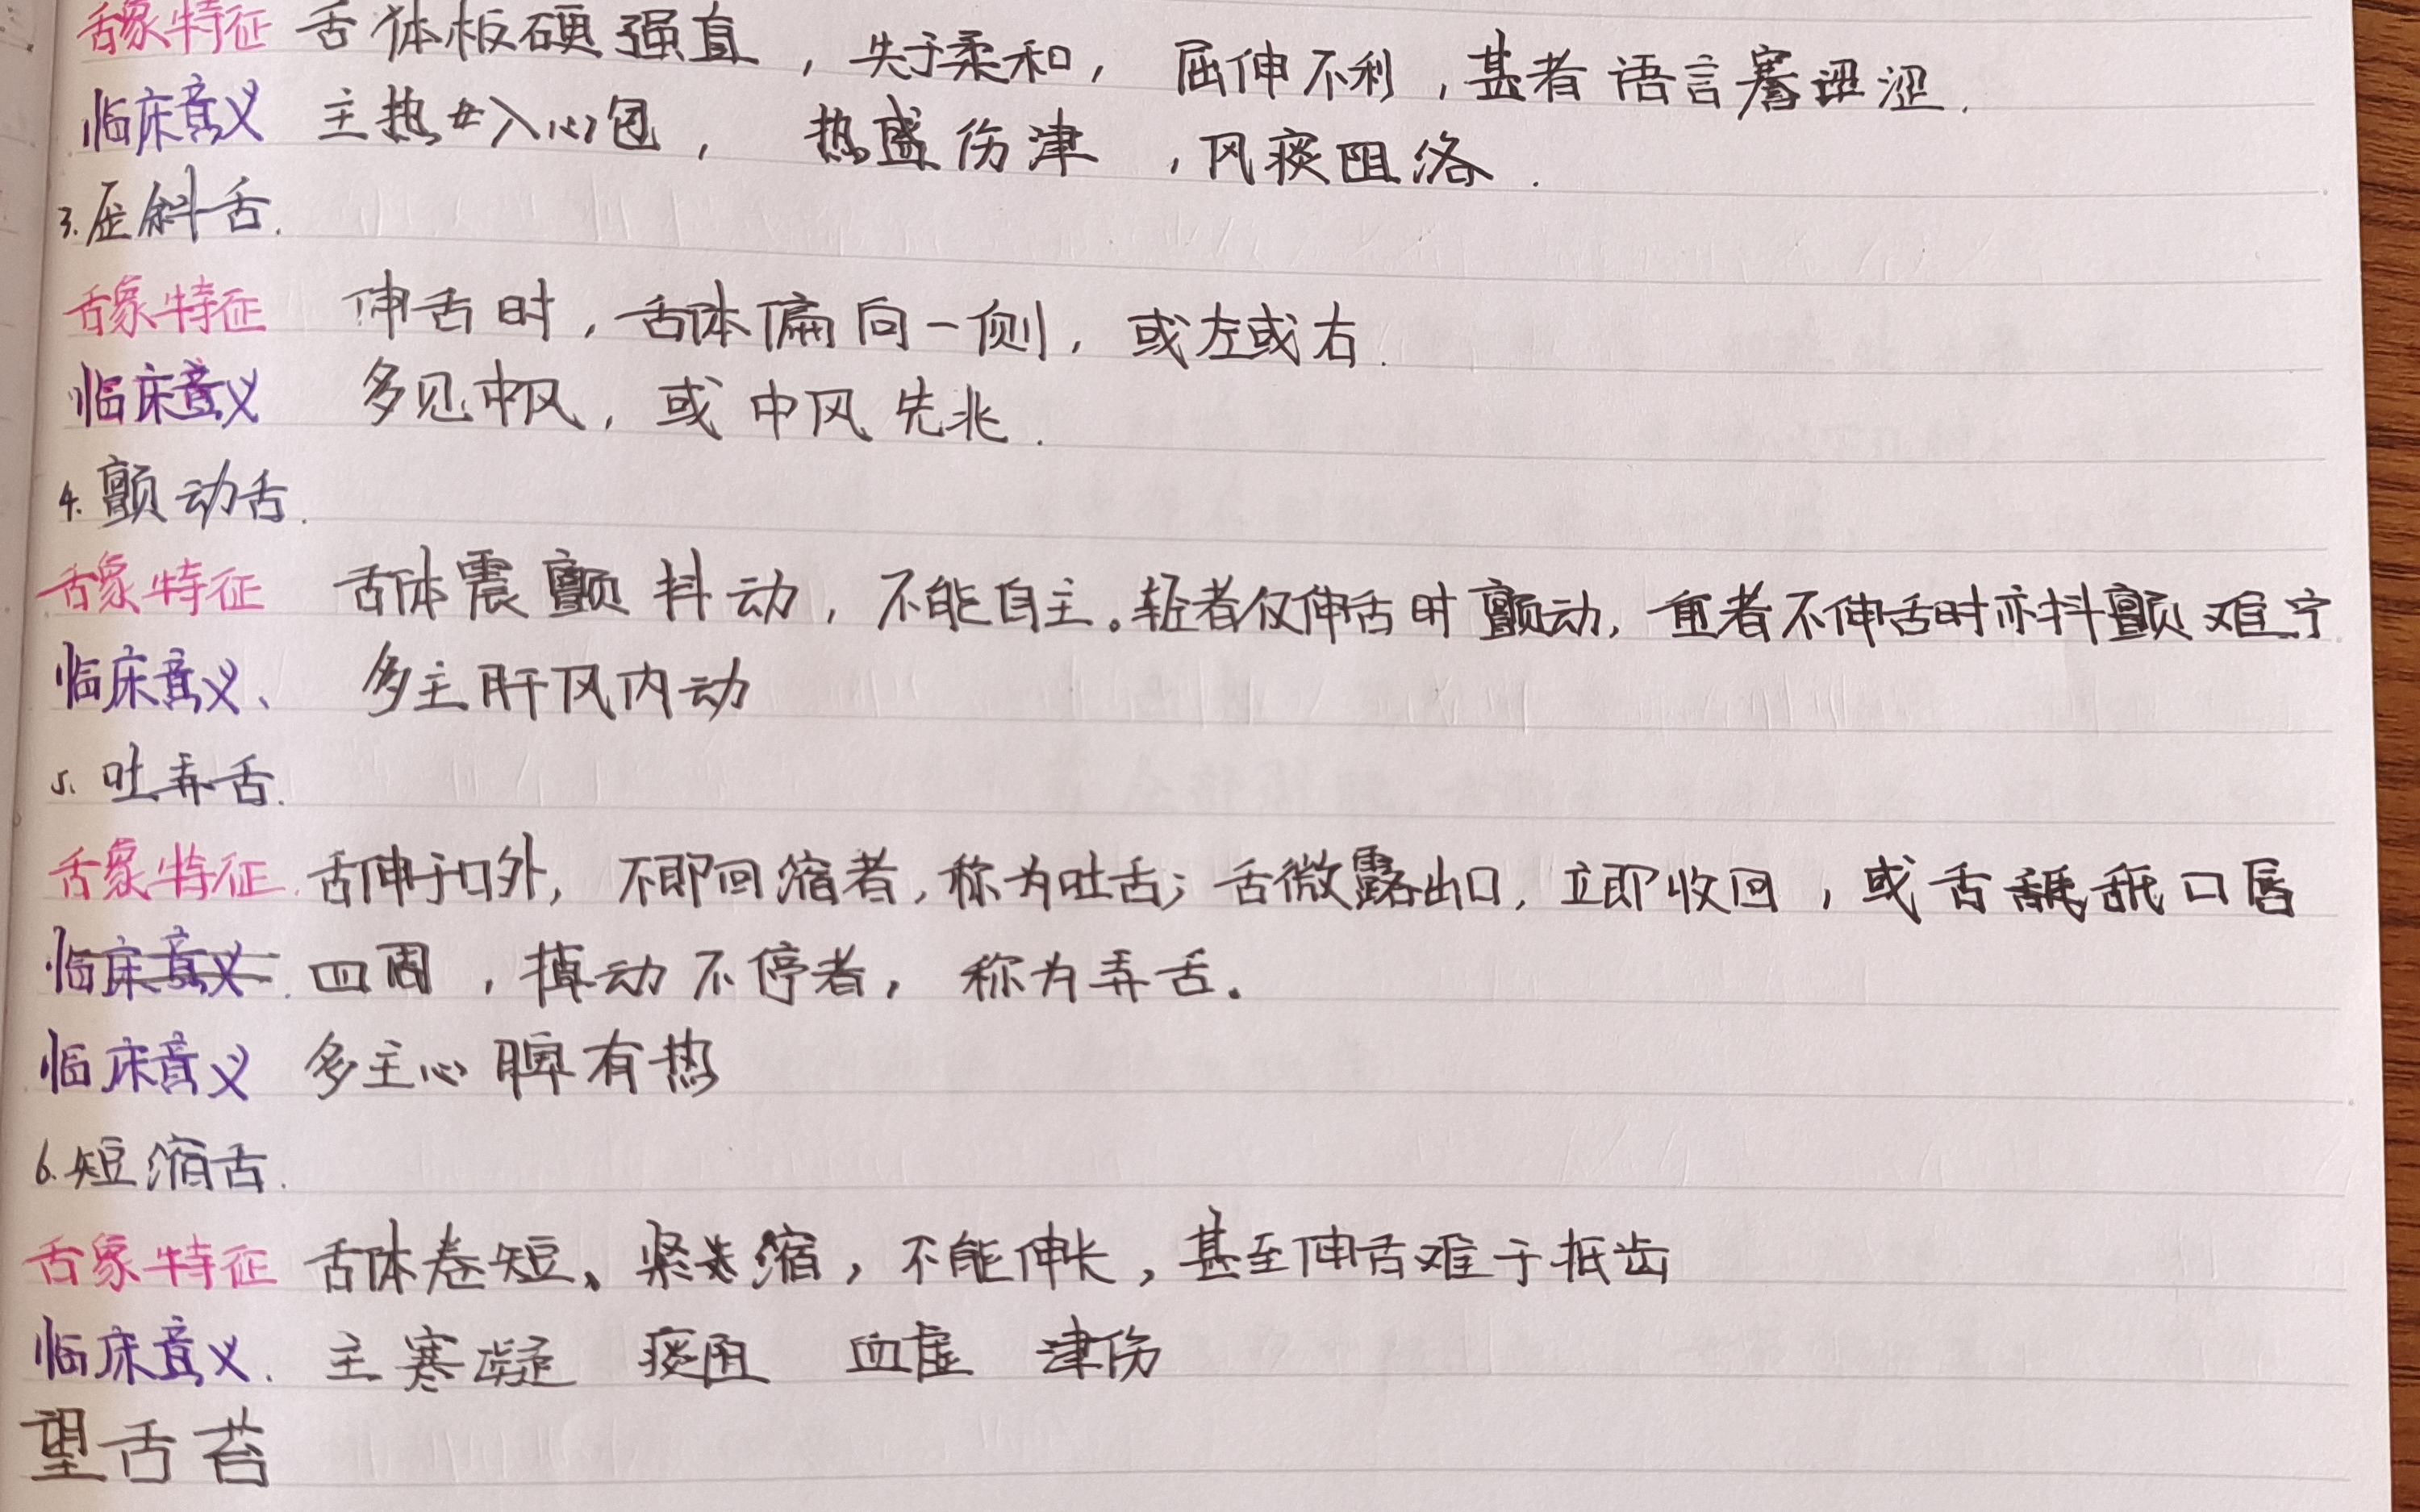 舌象特征 舌体板硬强直，失于柔和，屈伸不利，甚者语言謇涩.
临床意义 主热入心包，热盛伤津，风痰阻络.
3.歪斜舌.
舌象特征 伸舌时，舌体偏向一侧，或左或右.
临床意义 多见中风，或中风先兆.
4.颤动舌.
舌象特征 舌体震颤抖动，不能自主。轻者仅伸舌时颤动，重者不伸舌时亦抖颤难宁
临床意义、多主肝风内动
5.吐弄舌.
舌象特征.舌伸于口外，不即回缩者，称为吐舌；舌微露出口，立即收回，或舌舐口唇
临床意义.四周，掉动不停者，称为弄舌。
临床意义 多主心脾有热
6.短缩舌.
舌象特征 舌体卷短、紧缩，不能伸长，甚至伸舌难于抵齿
临床意义.主寒凝 痰阻 血虚 津伤
望舌苔